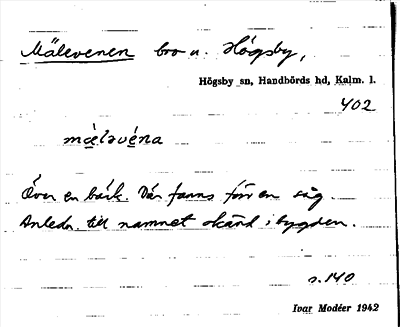 Mälevenen bro u. Högsby,
Högsby sn, Handbörds hd, Kalm. l.
402
mä̀levéna
Över en bäck. Där fanns förr en såg.
Anledn. till namnet okänd i bygden.
s. 140
Ivar Modéer 1942